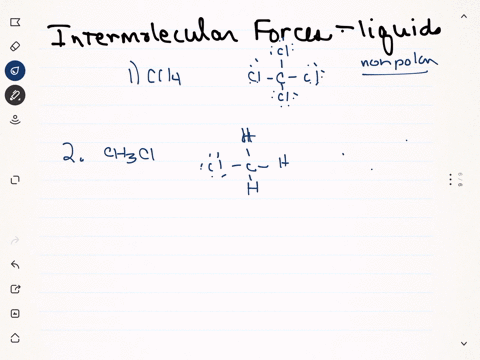 Intermolecular Forces - liquids
nonpolar
1) CCl4
:Cl:
:Cl - C - Cl:
:Cl:
2. CH3Cl
H
:Cl - C - H
H